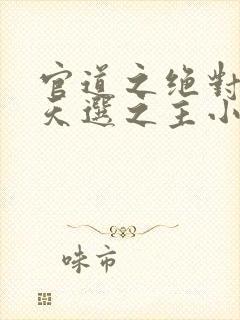 官道之绝對
天選之主小
味市